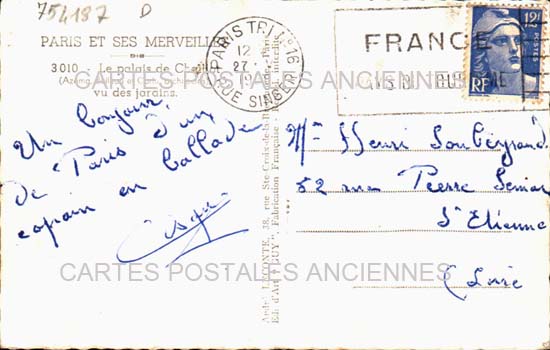 754187 D
PARIS ET SES MERVEILLES
3010 - Le palais de Chaillot
vu des jardins.
PARIS TRI No 16
12
27
19
RUE SINGER
FRANCE
12F
RF
CARTES POSTALES ANCIENNES
Un bonjour
de Paris d'un
copain en ballade
Mme Henri Soubeyrand
52 rue Pierre Semard
St Etienne
(Loire
André LECONTE, 38, rue Ste-Croix-de-la-Bretonnerie, Paris
Éd. d'Art "GUY" Fabrication Française
CARTES POSTALES ANCIENNES